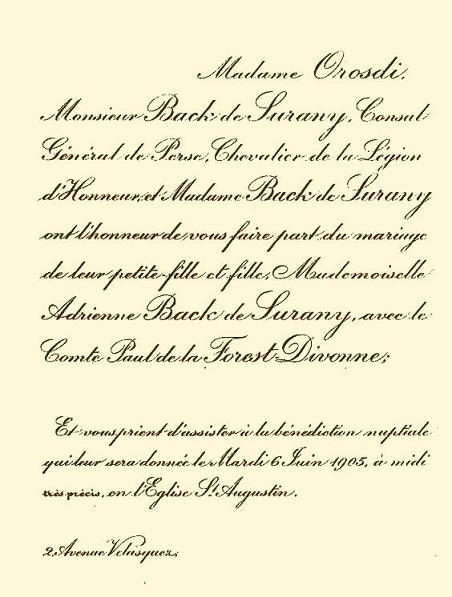 Madame Orosdi,
Monsieur Back de Surany, Consul
Général de Perse, Chevalier de la Légion
d'Honneur, et Madame Back de Surany
ont l'honneur de vous faire part du mariage
de leur petite-fille et fille, Mademoiselle
Adrienne Back de Surany, avec le
Comte Paul de la Forest Divonne;
Et vous prient d'assister à la bénédiction nuptiale
qui leur sera donnée le Mardi 6 Juin 1905, à midi
très précis, en l'Eglise St Augustin.
2, Avenue Velasquez.